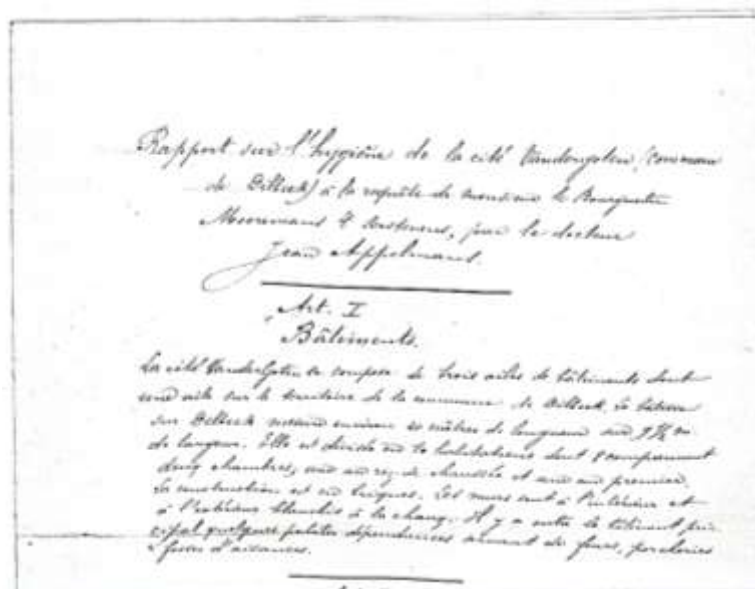 Rapport sur l'hygiène de la cité Vandergoten, (commune
de Dilbeek) à la requête de monsieur le Bourgmestre
Mooremans & , par le docteur
Jean Appelmans.
Art. I
Bâtiments.
La cité VanderGoten se compose de trois ailes de bâtiments dont
une aile sur le territoire de la commune de Dilbeek. Le bâtiment
sur Dilbeek mesure environ 40 mètres de longueur sur m.
de largeur. Elle est divisée en 10 habitations dont 8 comprennent
deux chambres, une au rez de chaussée et une au premier.
La construction est en briques. Les murs sont à l'intérieur et
à l'extérieur blanchis à la chaux. Il y a outre le bâtiment prin
cipal quelques petites dépendances servant de fours, porcheries
& fosses d'aisances.